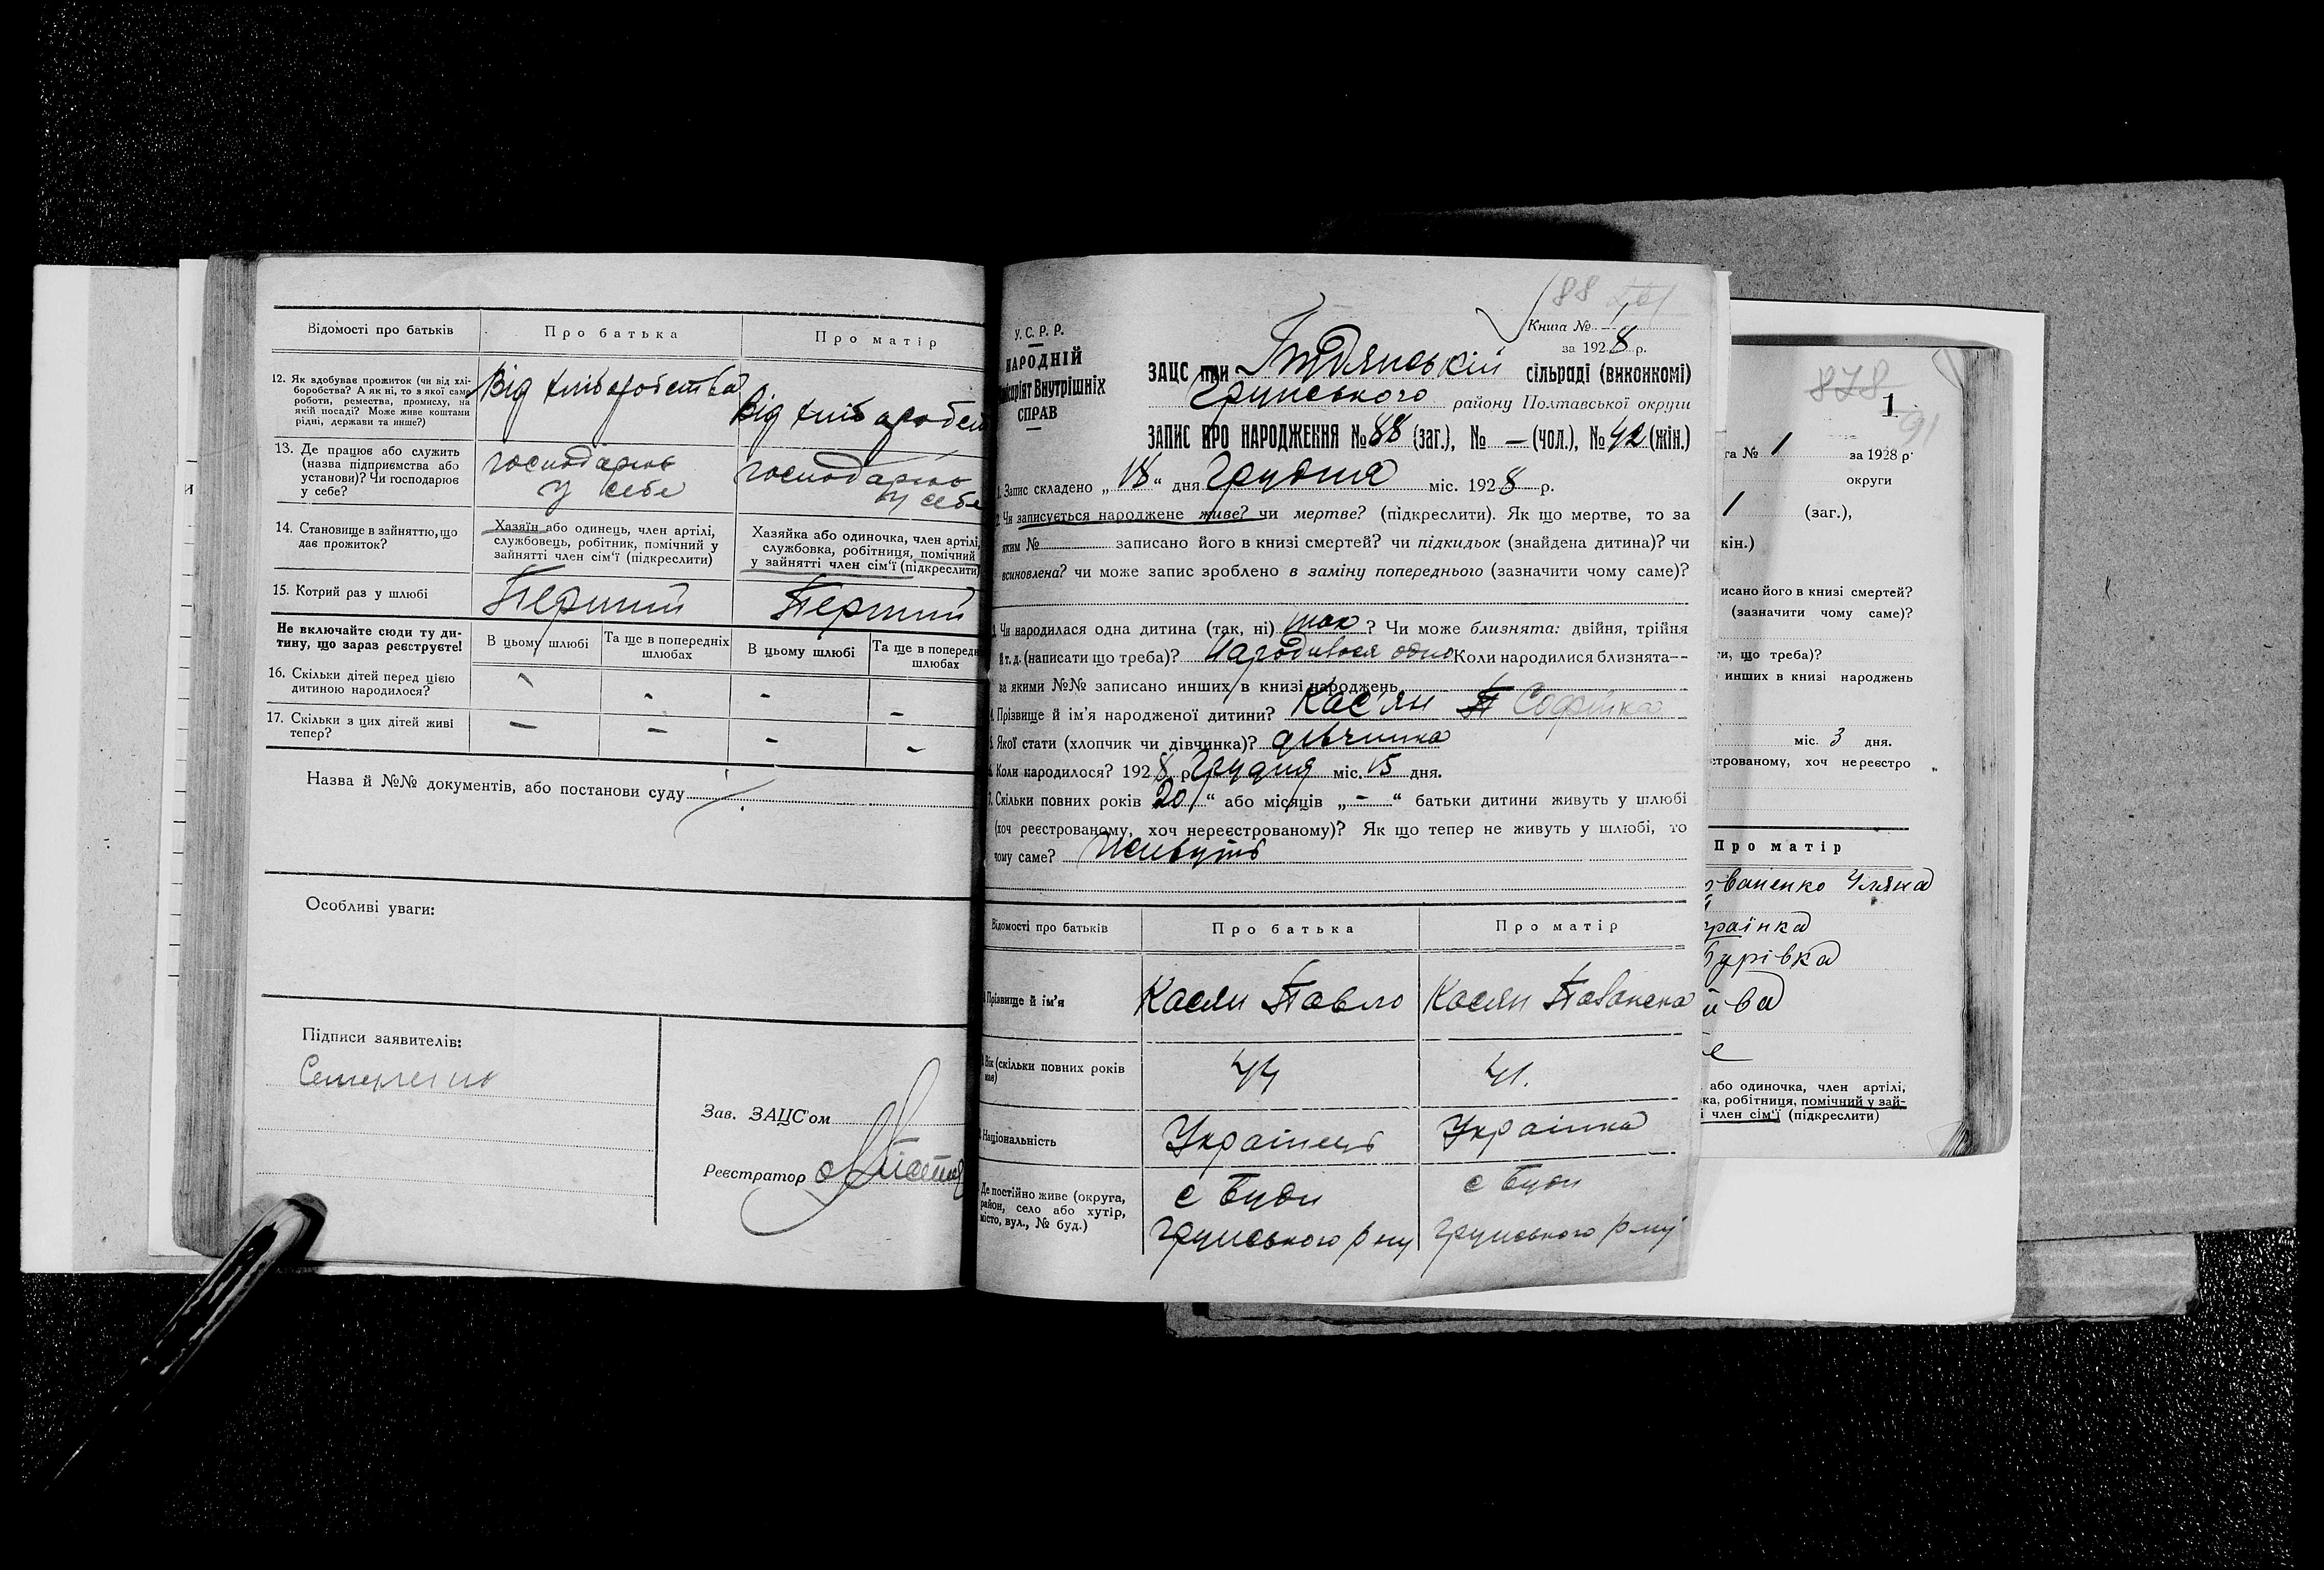 Відомості про батьків
Про батька
Про матір
12. Як здобуває прожиток (чи від хлі-
боробства? А як ні, то з якої саме
роботи, ремества, промислу, на
якій посаді? Може живе коштами
рідні, держави та инше?)
Від хліборобства
Від хліборобст
13. Де працює або служить
(назва підприємства або
установи)? Чи господарює
у себе?
господарює
у себе
господарює
у себе
14. Становище в зайняттю, що
дає прожиток?
Хазяїн або одинець, член артілі,
службовець, робітник, помічний у
зайнятті член сім'ї (підкреслити)
Хазяйка або одиночка, член артілі,
службовка, робітниця, помічний
у зайнятті член сім'ї (підкреслити)
15. Котрий раз у шлюбі
Перший
Перший
Не включайте сюди ту ди-
тину, що зараз реєструєте!
В цьому шлюбі
Та ще в попередніх
шлюбах
В цьому шлюбі
Та ще в попередн
шлюбах
16. Скільки дітей перед цією
дитиною народилося?
- - -
17. Скільки з цих дітей живі
тепер?
- - - -
Назва й №№ документів, або постанови суду
Особливі уваги:
Підписи заявителів:
Зав. ЗАЦС'ом
Реєстратор
88
Книга № 1
за 1928 р.
У. С. Р. Р.
НАРОДНІЙ
Внутрішніх
СПРАВ
ЗАЦС при сільраді (виконкомі)
Грунського району Полтавської округи
ЗАПИС ПРО НАРОДЖЕННЯ № 88 (заг.), № — (чол.), № 42 (жін.)
1. Запис складено „18“ дня Грудня міс. 1928 р.
2. Чи записується народжене живе? чи мертве? (підкреслити). Як що мертве, то за
яким № записано його в книзі смертей? чи підкидьок (знайдена дитина)? чи
всиновлена? чи може запис зроблено в заміну попереднього (зазначити чому саме)?
Чи народилася одна дитина (так, ні) так? Чи може близнята: двійня, трійня
й т. д. (написати що треба)? Народилося одно Коли народилися близнята--
за якими №№ записано инших в книзі народжень
Прізвище й ім'я народженої дитини? Кас'ян Софійка
Якої стати (хлопчик чи дівчинка)? дівчинка
Коли народилося? 1928 р Грудня міс. 15 дня.
7. Скільки повних років 20 “ або місяців „ - “ батьки дитини живуть у шлюбі
(хоч реєстрованому, хоч нереєстрованому)? Як що тепер не живуть у шлюбі, то
чому саме? Живуть
Відомості про батьків
Про батька
Про матір
Прізвище й ім'я
Касян Павло
Касян
Вік (скільки повних років
має)
44
41.
Національність
Українець
Українка
Де постійно живе (округа,
район, село або хутір,
місто, вул., № буд.)
с Буди
Грунського р-ну
с Буди
Грунського р-ну
878
1
91
га № 1 за 1928 р.
округи
1 (заг.),
жін.)
исано його в книзі смертей?
(зазначити чому саме)?
ти, що треба)?
инших в книзі народжень
міс. 3 дня.
строваному, хоч нереєстро
Про матір
ованенко Уляна
країнка
або одиночка, член артілі,
ка, робітниця, помічний у зай-
і член сім'ї (підкреслити)